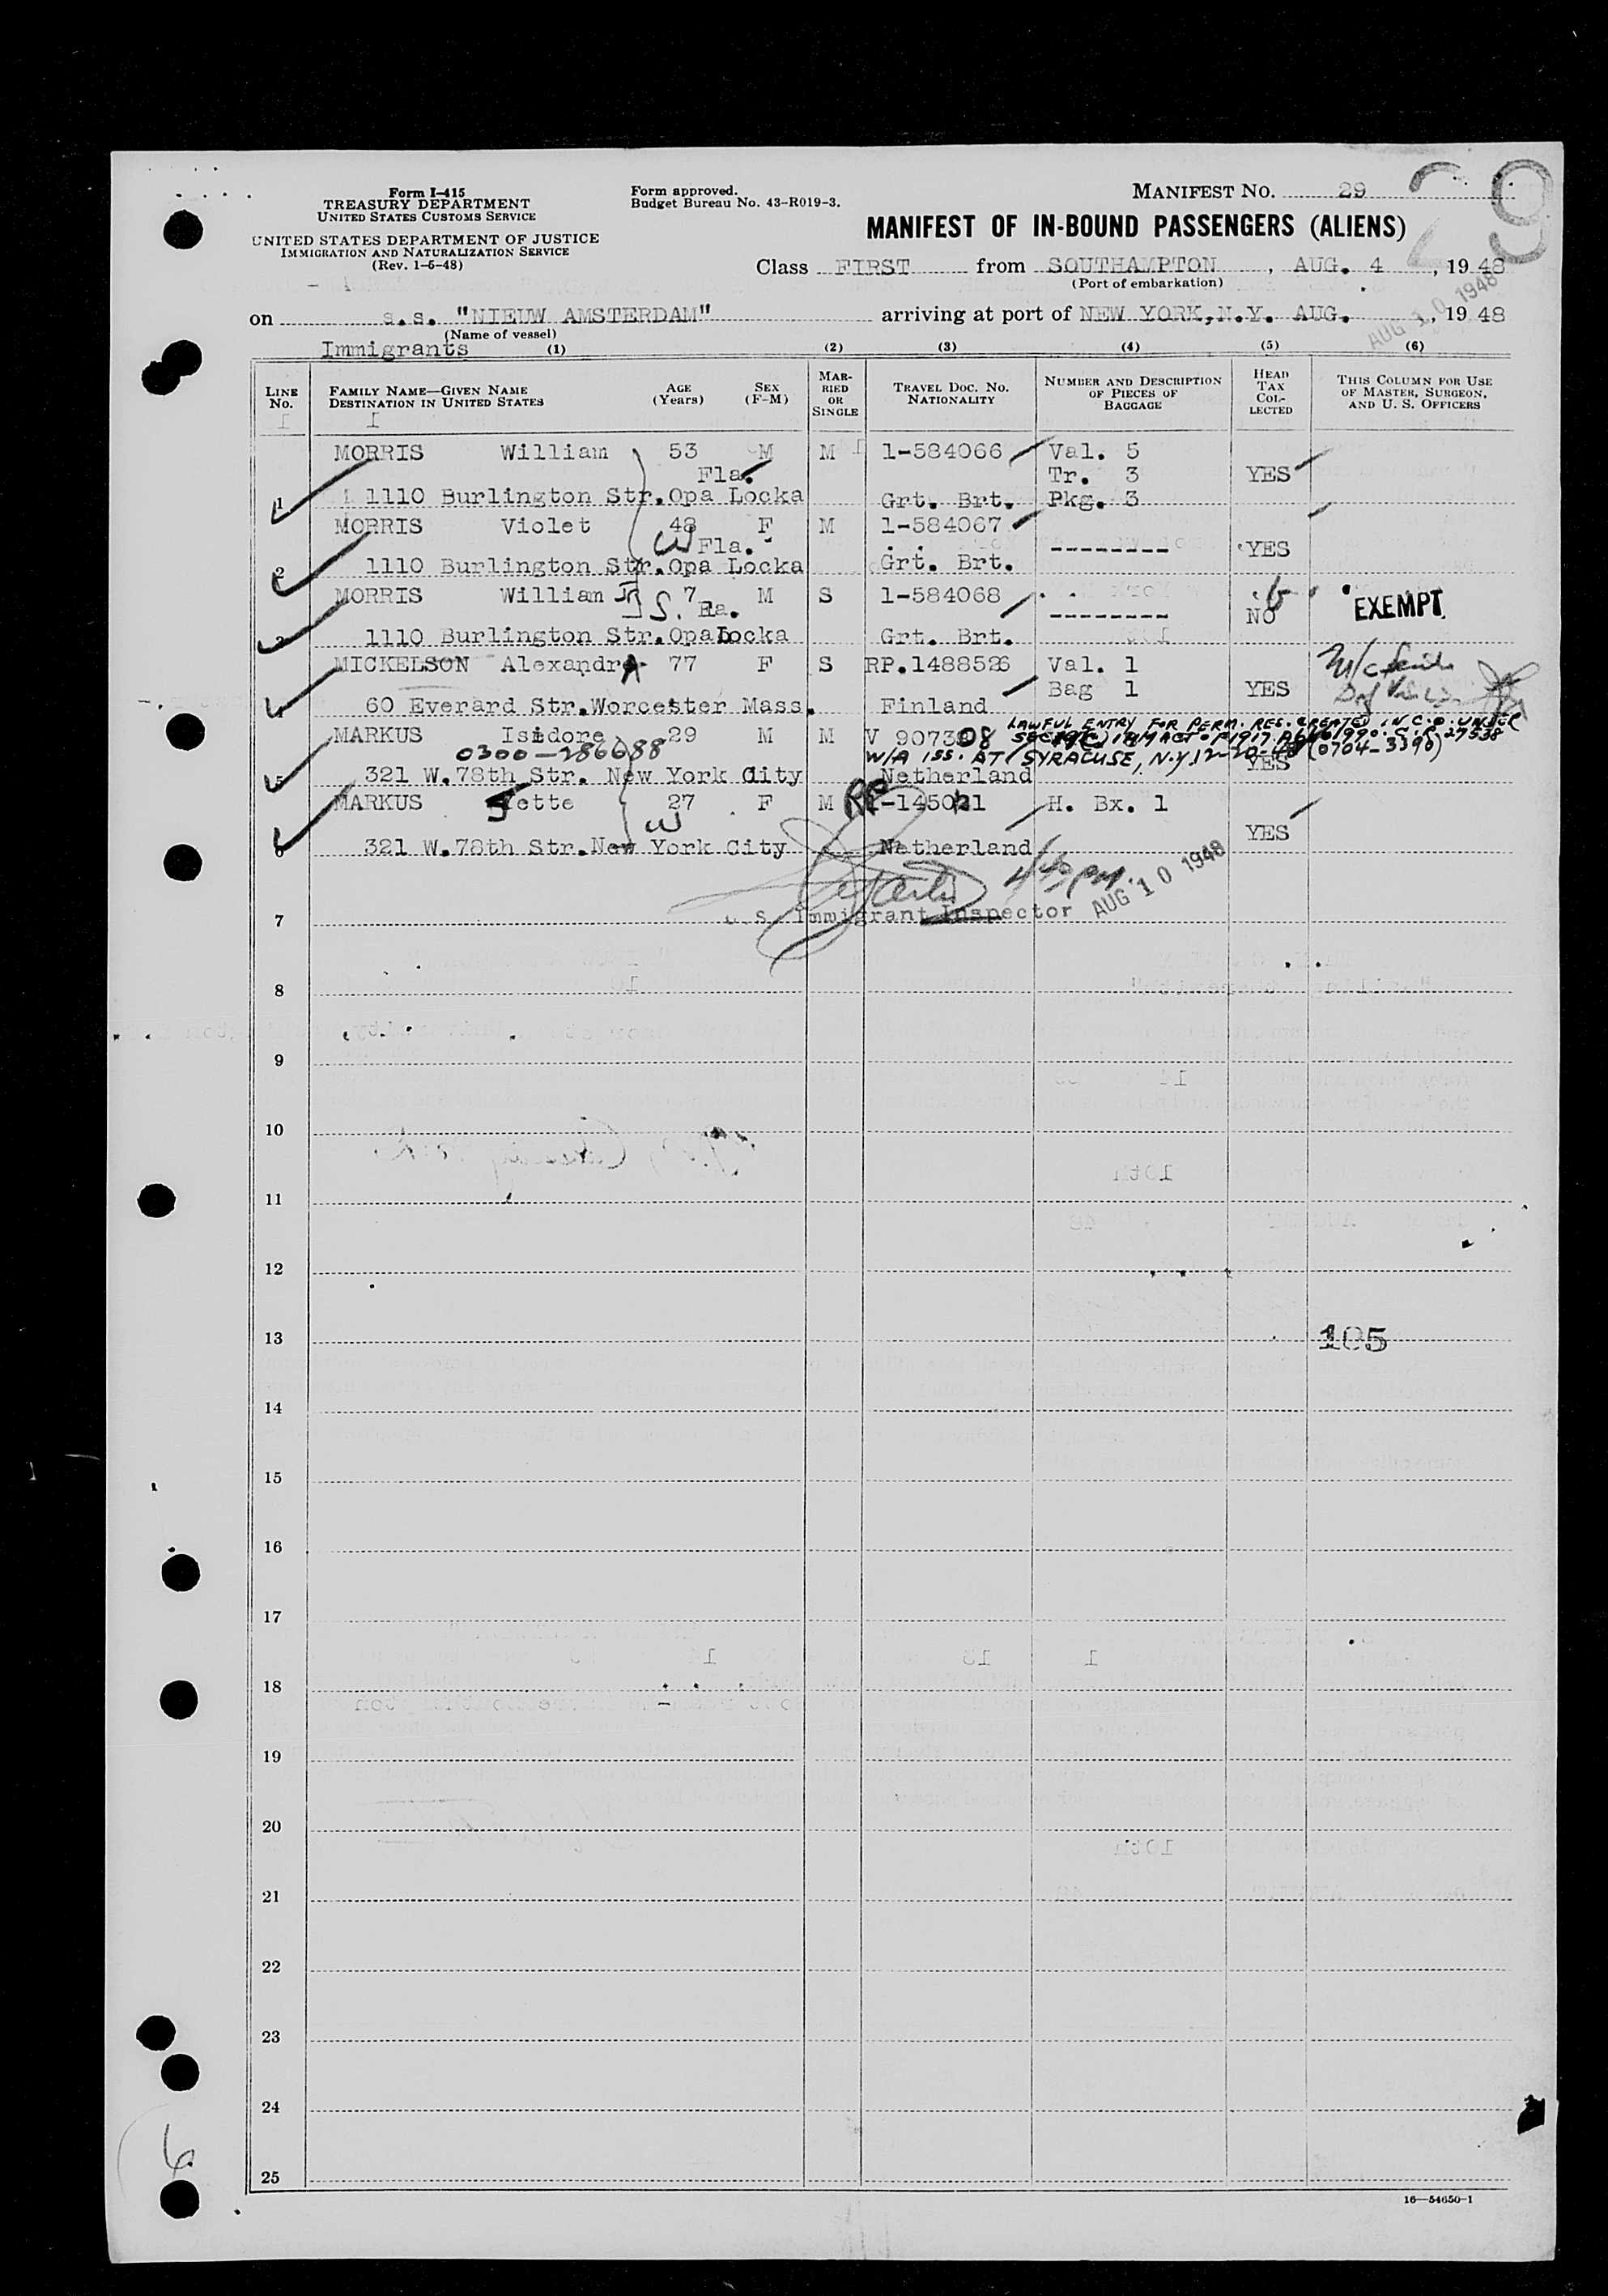 Form I-415
TREASURY DEPARTMENT
UNITED STATES CUSTOMS SERVICE
UNITED STATES DEPARTMENT OF JUSTICE
IMMIGRATION AND NATURALIZATION SERVICE
(Rev. 1-6-48)
Form approved.
Budget Bureau No. 43-R019-3.
MANIFEST NO. 29
29
MANIFEST OF IN-BOUND PASSENGERS (ALIENS)
Class FIRST from SOUTHAMPTON, AUG. 4, 1948
(Port of embarkation)
on s.s. "NIEUW AMSTERDAM" arriving at port of NEW YORK,N.Y. AUG. , 1948
(Name of vessel)
AUG 10 1948
Immigrants
(1) (2) (3) (4) (5) (6)
LINE No.
FAMILY NAME—GIVEN NAME
DESTINATION IN UNITED STATES
AGE (Years)
SEX (F-M)
MARRIED OR SINGLE
TRAVEL DOC. NO.
NATIONALITY
NUMBER AND DESCRIPTION OF PIECES OF BAGGAGE
HEAD TAX COLLECTED
THIS COLUMN FOR USE OF MASTER, SURGEON, AND U. S. OFFICERS
MORRIS William 53 M M 1-584066 Val. 5
Fla. Tr. 3 YES
1 1110 Burlington Str.Opa Locka Grt. Brt. Pkg. 3
MORRIS Violet 48 F M 1-584067
W Fla. -------- YES
2 1110 Burlington Str.Opa Locka Grt. Brt.
MORRIS William 7 M S 1-584068
S. Fla. -------- NO EXEMPT
3 1110 Burlington Str.Opa Locka Grt. Brt.
MICKELSON AlexandrA 77 F S RP.1488526 Val. 1
Bag 1 YES
4 60 Everard Str.Worcester Mass. Finland
MARKUS Isidore 29 M M V 907308
LAWFUL ENTRY FOR PERM. RES. CREATED IN C.O. UNDER
SEC. 19(C) IMM ACT OF 1917 27538
0300-286688
W/A ISS. AT SYRACUSE, N.Y. 12-20-48 (0704-3390)
YES
5 321 W.78th Str. New York City Netherland
MARKUS Jette 27 F M RP H. Bx. 1
W YES
6 321 W.78th Str.New York City Netherland
4:40 PM.
AUG 10 1948
U. S. Immigrant Inspector
7
8
9
10
11
12
13
105
14
15
16
17
18
19
20
21
22
23
24
25
6
16—54650-1